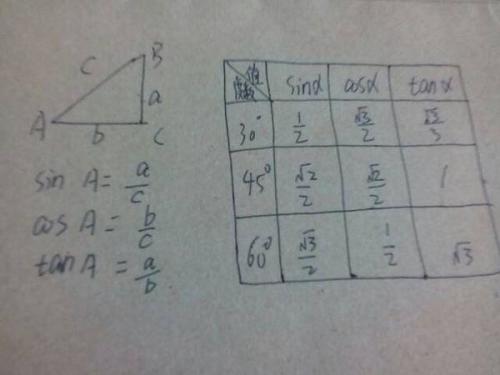 c B
a
A b C
sin A = a/c
cos A = b/c
tan A = a/b
sinα cosα tanα
30° 1/2 √3/2 √3/3
45° √2/2 √2/2 1
60° √3/2 1/2 √3